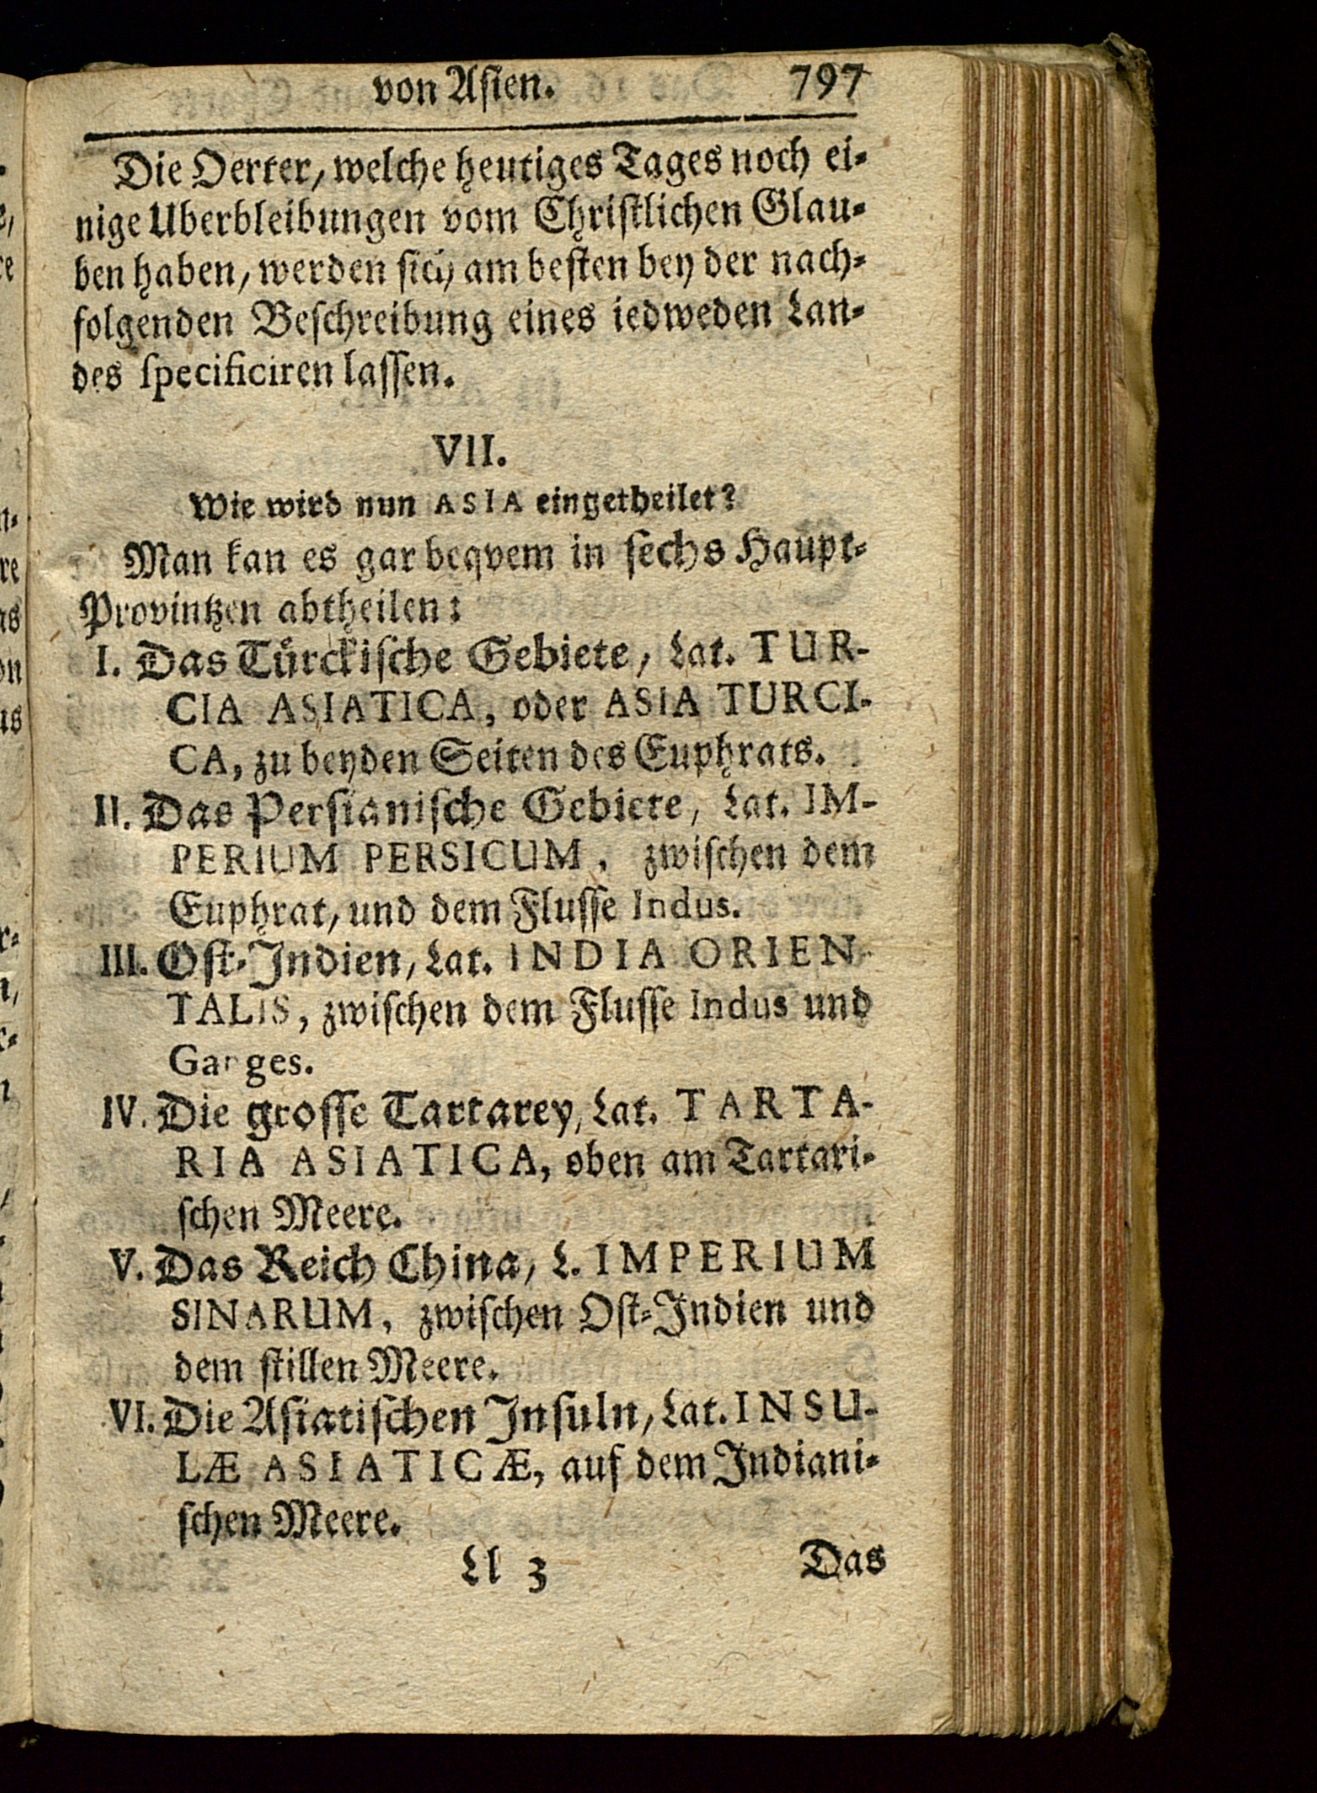 von Asien. 797
Die Oerter, welche heutiges Tages noch ei-
nige Uberbleibungen vom Christlichen Glau-
ben haben, werden sich am besten bey der nach-
folgenden Beschreibung eines iedweden Lan-
des specificiren lassen.
VII.
Wie wird nun ASIA eingetheilet?
Man kan es gar beqvem in sechs Haupt-
Provintzen abtheilen:
I. Das Türckische Gebiete, Lat. TUR-
CIA ASIATICA, oder ASIA TURCI-
CA, zu beyden Seiten des Euphrats.
II. Das Persianische Gebiete, Lat. IM-
PERIUM PERSICUM, zwischen dem
Euphrat, und dem Flusse Indus.
III. Ost-Indien, Lat. INDIA ORIEN-
TALIS, zwischen dem Flusse Indus und
Ganges.
IV. Die grosse Tartarey, Lat. TARTA-
RIA ASIATICA, oben am Tartari-
schen Meere.
V. Das Reich China, L. IMPERIUM
SINARUM, zwischen Ost-Indien und
dem stillen Meere.
VI. Die Asiatischen Insuln, Lat. INSU-
LÆ ASIATICÆ, auf dem Indiani-
schen Meere.
Ll 3 Das